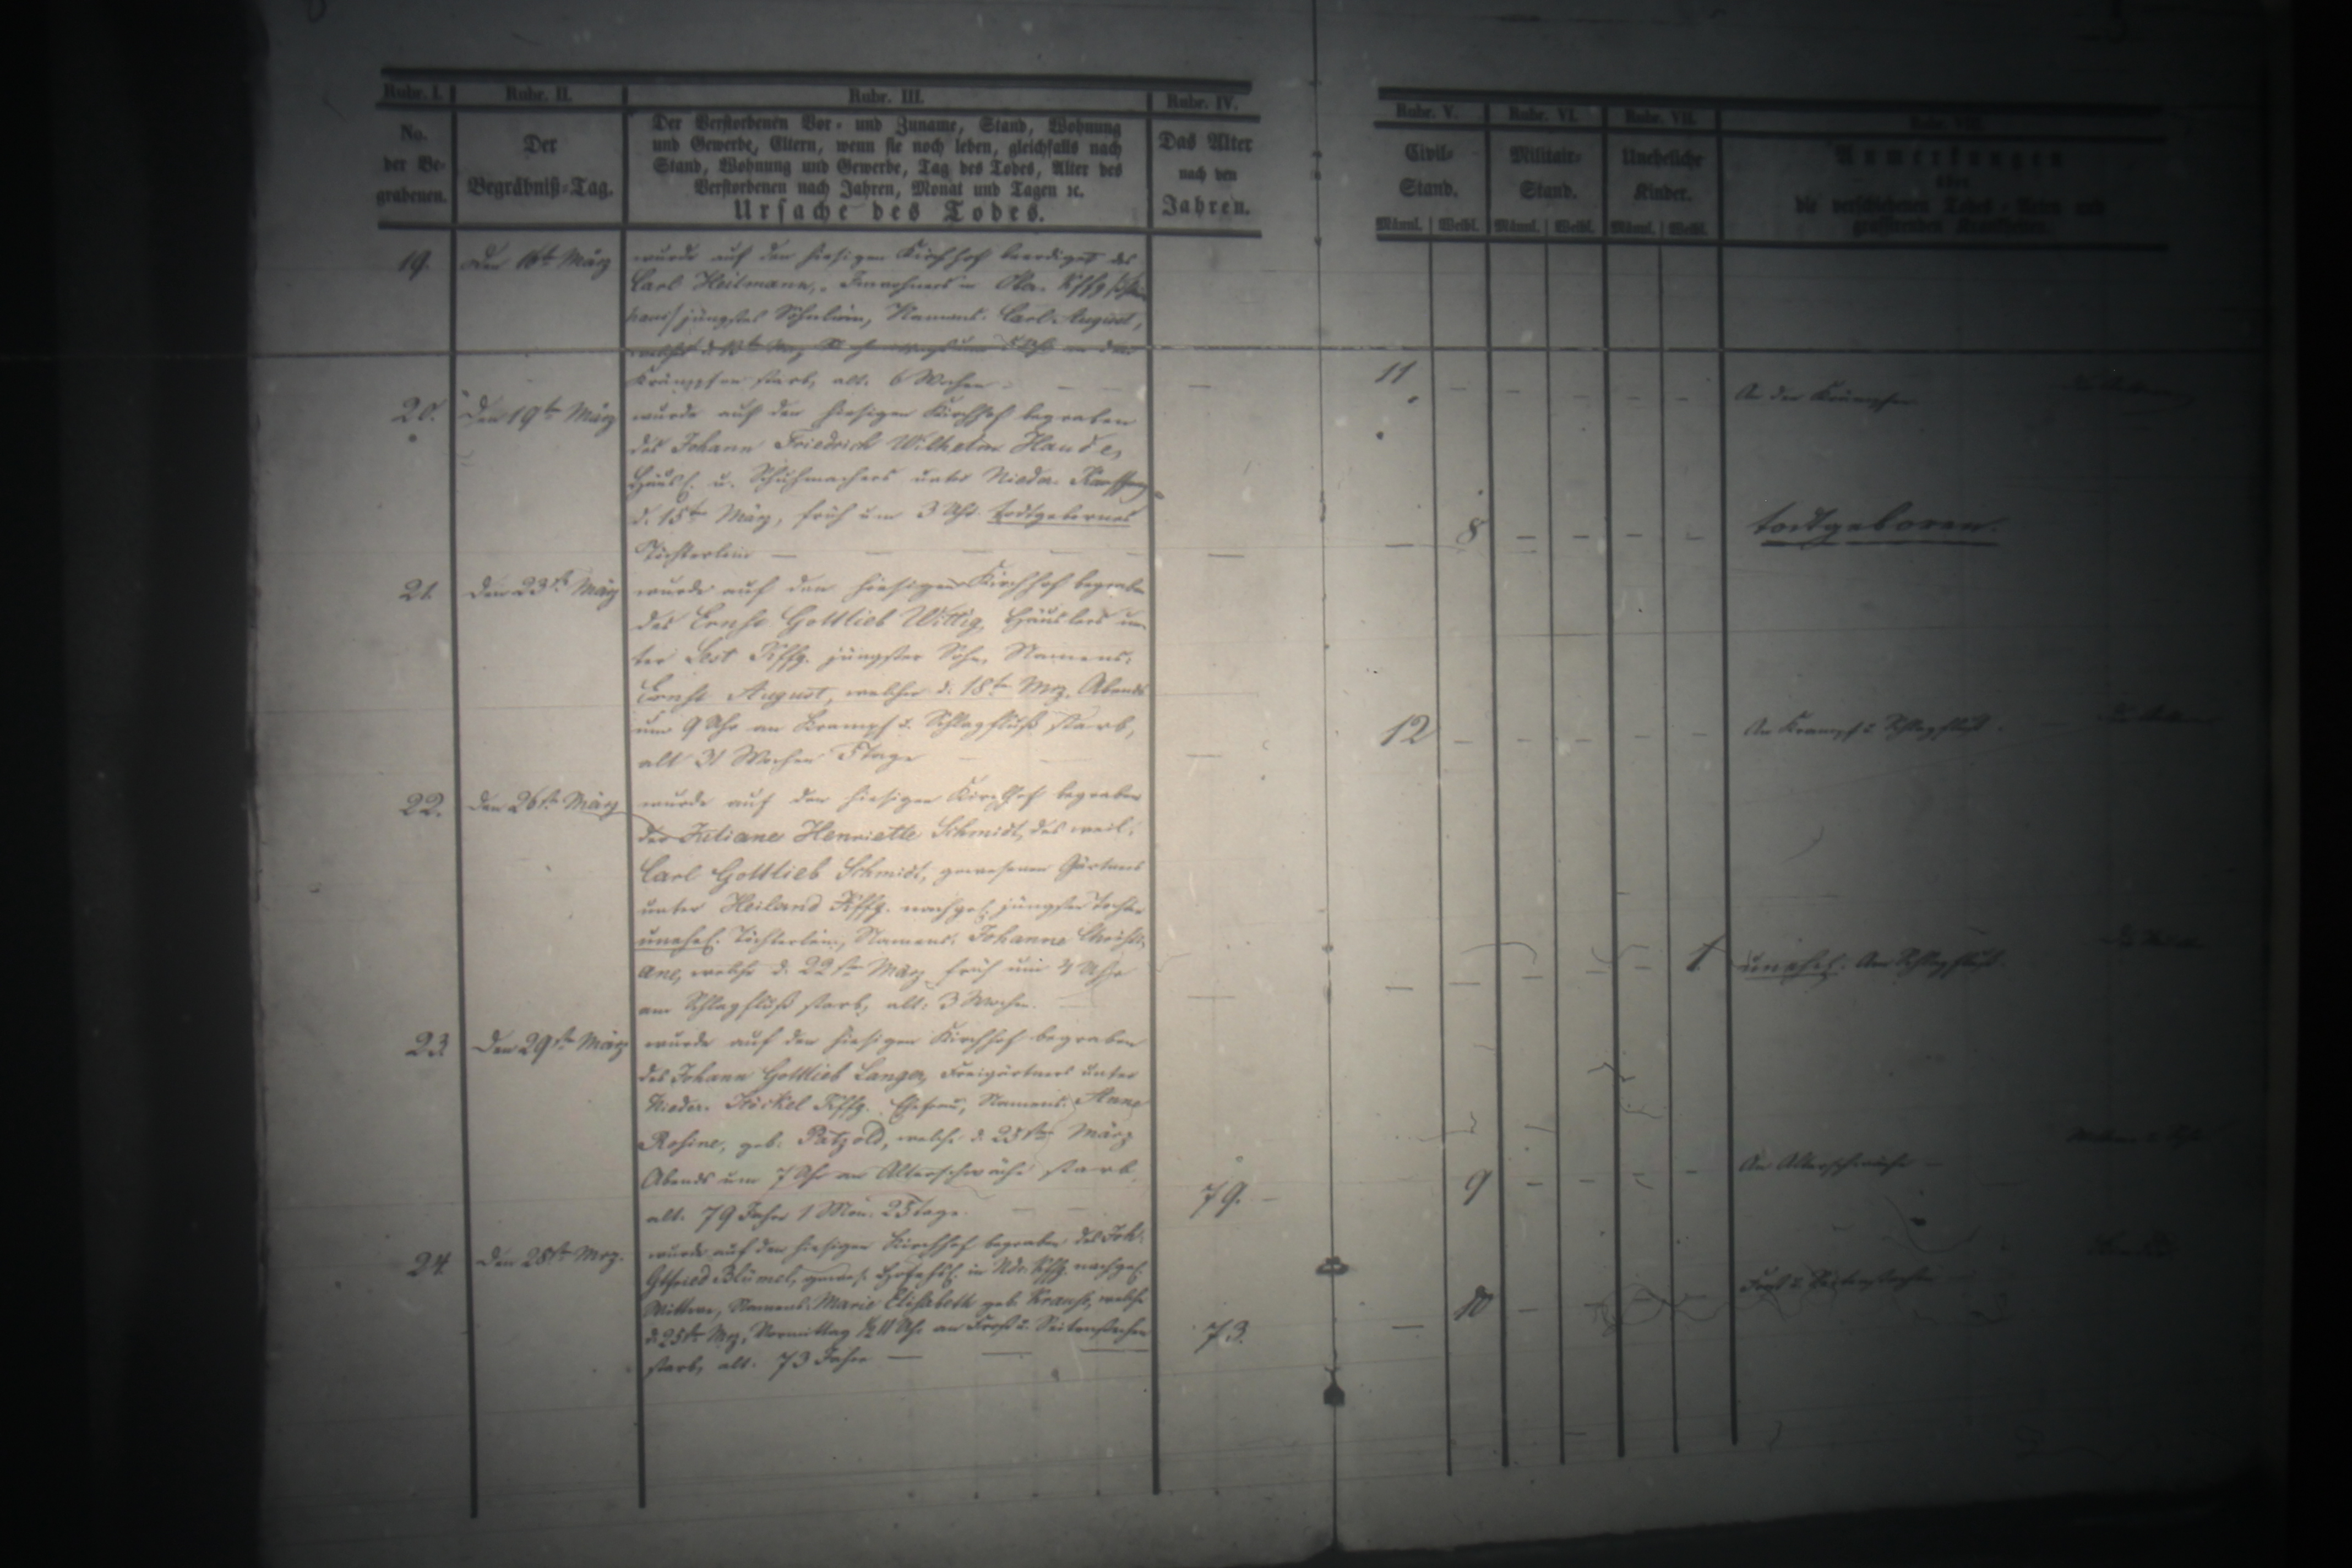 Rubr. I. Rubr. II. Rubr. III. Rubr. IV. Rubr. V. Rubr. VI. Rubr. VII. Rubr. VIII.
No. der Be- grabenen.
Der Begräbniß-Tag.
Der Verstorbenen Vor- und Zuname, Stand, Wohnung
und Gewerbe, Eltern, wenn sie noch leben, gleichfalls nach
Stand, Wohnung und Gewerbe, Tag des Todes, Alter des
Verstorbenen nach Jahren, Monat und Tagen ꝛc.
Ursache des Todes.
Das Alter nach den Jahren.
Civil- Stand.
Militair- Stand.
Uneheliche Kinder.
Männl. Weibl. Männl. Weibl. Männl. Weibl.
Anmerkungen
über
die verschiedenen Todes-Arten und
grassirenden Krankheiten.
19. Den 16te März wurde auf den hiesigen Kirchhof beerdiget des
Carl Heilmann, Inwohners in
jüngstes Söhnlein, Namens: Carl August,
Krämpfen starb, alt: 6 Wochen — — 11 — — — — — An den Krämpfen
20. Den 19te März wurde auf den hiesigen Kirchhof begraben
des Johann Friedrich Wilhelm Haude,
Häusl. u. Schuhmachers unter Nieder-Kauffung
d. 15te März, früh um 3 Uhr todtgebornes
Töchterlein — — — 8 — — — — todtgeboren.
21. Den 23te März wurde auf den hiesigen Kirchhof begraben
des Ernst Gottlieb Wittig, Häuslers un-
ter Lest Kffg. jüngster Sohn, Namens:
Ernst August, welcher d. 18te Mrz. Abends
um 9 Uhr an Krampf u. Schlagfluß starb,
alt 31 Wochen 5 Tage — 12 — — — — — An Krampf u. Schlagfluß.
22. Den 26te März wurde auf den hiesigen Kirchhof begraben
der Juliane Henriette Schmidt, des weil.
Carl Gottlieb Schmidt, gewesenen Gärtners
unter Heiland Kffg. nachgel. jüngster Tochter
unehel. Töchterlein, Namens: Johanne Christi-
ane, welche d. 22te März früh um 4 Uhr
am Schlagfluß starb, alt: 3 Wochen. — — — — — — 1. unehel. Am Schlagfluß.
23. Den 29te März wurde auf den hiesigen Kirchhof begraben
des Johann Gottlieb Langer, Freigärtners unter
Nieder- Stöckel Kffg. Ehefrau, Namens: Anne
Rosine, geb: Pätzold, welche d. 25te März
Abends um 7 Uhr an Altersschwäche starb,
alt: 79 Jahre 1 Mon. 25 Tage. 79. — 9 — — — — An Altersschwäche —
24. Den 28te Mrz. wurde auf den hiesigen Kirchhof begraben des Joh:
Gtfried Blümel, gewes. in Ndr. Kffg. nachgel.
Wittwe, Namens: Marie Elisabeth geb. Krause, welche
d. 25te Mrz, Vormittag 1/2 11 Uhr an Frost u. Seitenstechen
starb, alt: 73 Jahre — — 73. — 10 — — — — Frost u. Seitenstechen